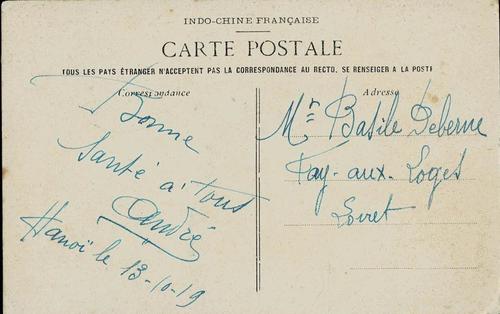 INDO-CHINE FRANÇAISE
CARTE POSTALE
TOUS LES PAYS ÉTRANGER N'ACCEPTENT PAS LA CORRESPONDANCE AU RECTO. SE RENSEIGER A LA POSTE
Correspondance
Bonne
Santé à tous
André
Hanoï le 13-10-19
Adresse
Mr Basile Deberne
Fay-aux-Loges
Loiret